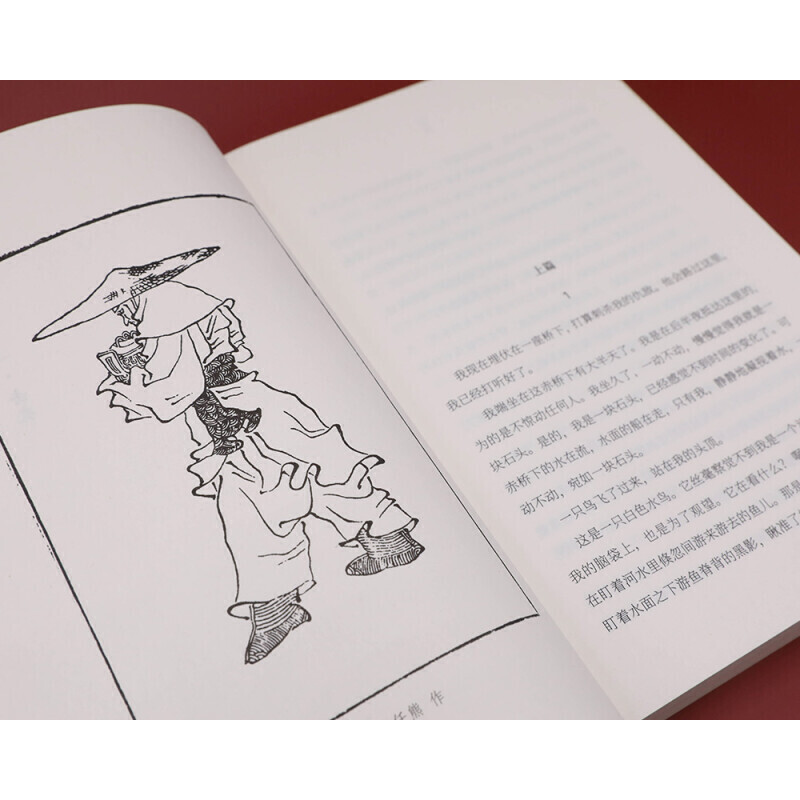 任熊 作
上篇
1
我现在埋伏在一座桥下，打算刺杀我的仇敌。他会路过这里，
我已经打听好了。
我蹲坐在这赤桥下有大半天了。我是在后半夜抵达这里的，
为的是不惊动任何人。我坐久了，一动不动，慢慢觉得我就是一
块石头。是的，我是一块石头，已经感觉不到时间的变化了。可
赤桥下的水在流，水面的船在走，只有我，静静地凝视着水，一
动不动，宛如一块石头。
一只鸟飞了过来，站在我的头顶。
这是一只白色水鸟。它丝毫察觉不到我是一个
我的脑袋上，也是为了观望。它在看什么？
在盯着河水里倏忽间游来游去的鱼儿。那是
盯着水面之下游鱼脊背的黑影，瞅准了